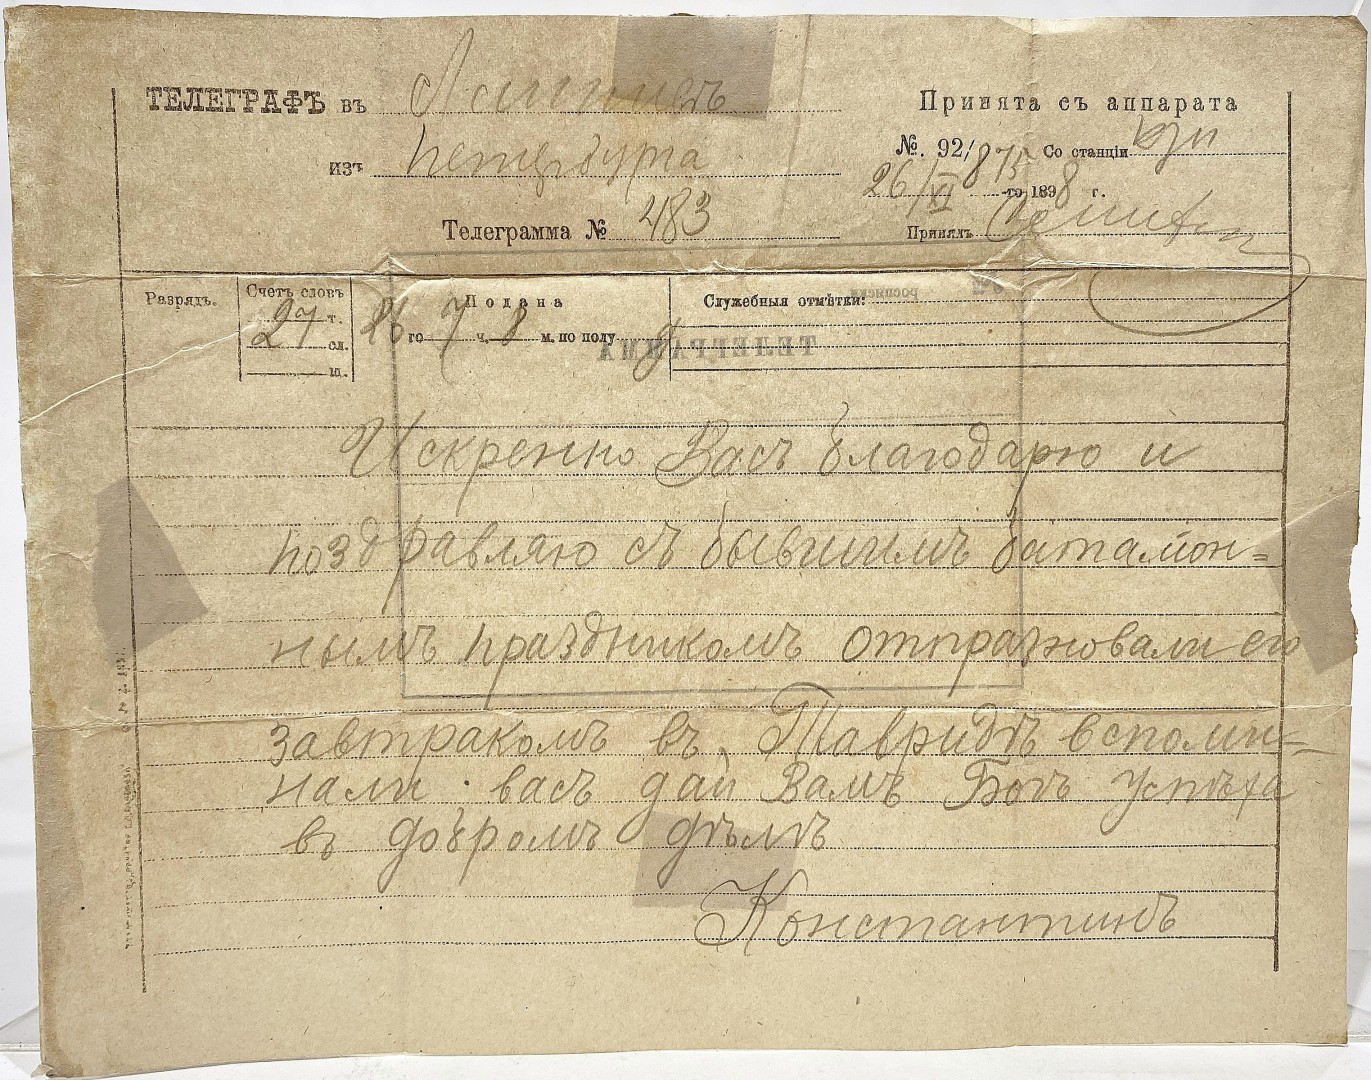 ТЕЛЕГРАФЪ въ
Принята съ аппарата
изъ Петербурга
№. 92/875 Со станціи
26/XI -го 1898 г.
Телеграмма № 483
Принялъ
Разрядъ.
Счетъ словъ
Подана
Служебныя отмѣтки:
росписки
27 т.
сл.
ш.
26 го 7 ч. 8 м. по полу
ТЕЛЕГРАММА
Искренно Васъ благодарю и
поздравляю съ бывшимъ баталіон=
нымъ праздникомъ отпразновали его
завтракомъ въ Тавридѣ вспоми=
нали васъ дай Вамъ Богъ успѣха
въ добромъ дѣлѣ
Константинъ